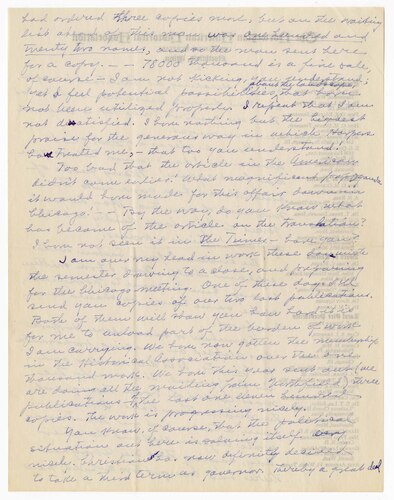 had ordered three copies more, but on the waiting
list ahead of this one was one hundred and
twenty two names, and so the man sent here
for a copy. — — 78000 thousand is a fine sale,
of course — I am not kicking, you understand:
yet I feel potential possibilities, about the landscape, that have
not been utilized properly. I repeat that I am
not dissatisfied. I have nothing but the highest
praise for the generous way in which Harpers
has treated me, — that too you understand!
Too bad that the article in the American
didn't come earlier! What magnificent propaganda
it would have made for this affair down in
Chicago! — — By the way, do you know what
has become of the article on the translation?
I have not seen it in the Times — have you?
I am over my head in work these days while
the semester is drawing to a close, and preparing
for the Chicago meeting. One of these days I'll
send you copies of our two last publications.
Both of them will show you how hard it is
for me to unload part of the burden of work
I am carrying. We have now gotten the membership
in the Historical Association over the one
thousand mark. We have this year sent out (we
are doing all the mailing from Northfield) three
publications, the last one eleven hundred
copies. The work is progressing nicely.
You know, of course, that the political
situation out here is solving itself very
nicely. Christianson now definitely decided
to take a third term as governor. Thereby a great deal